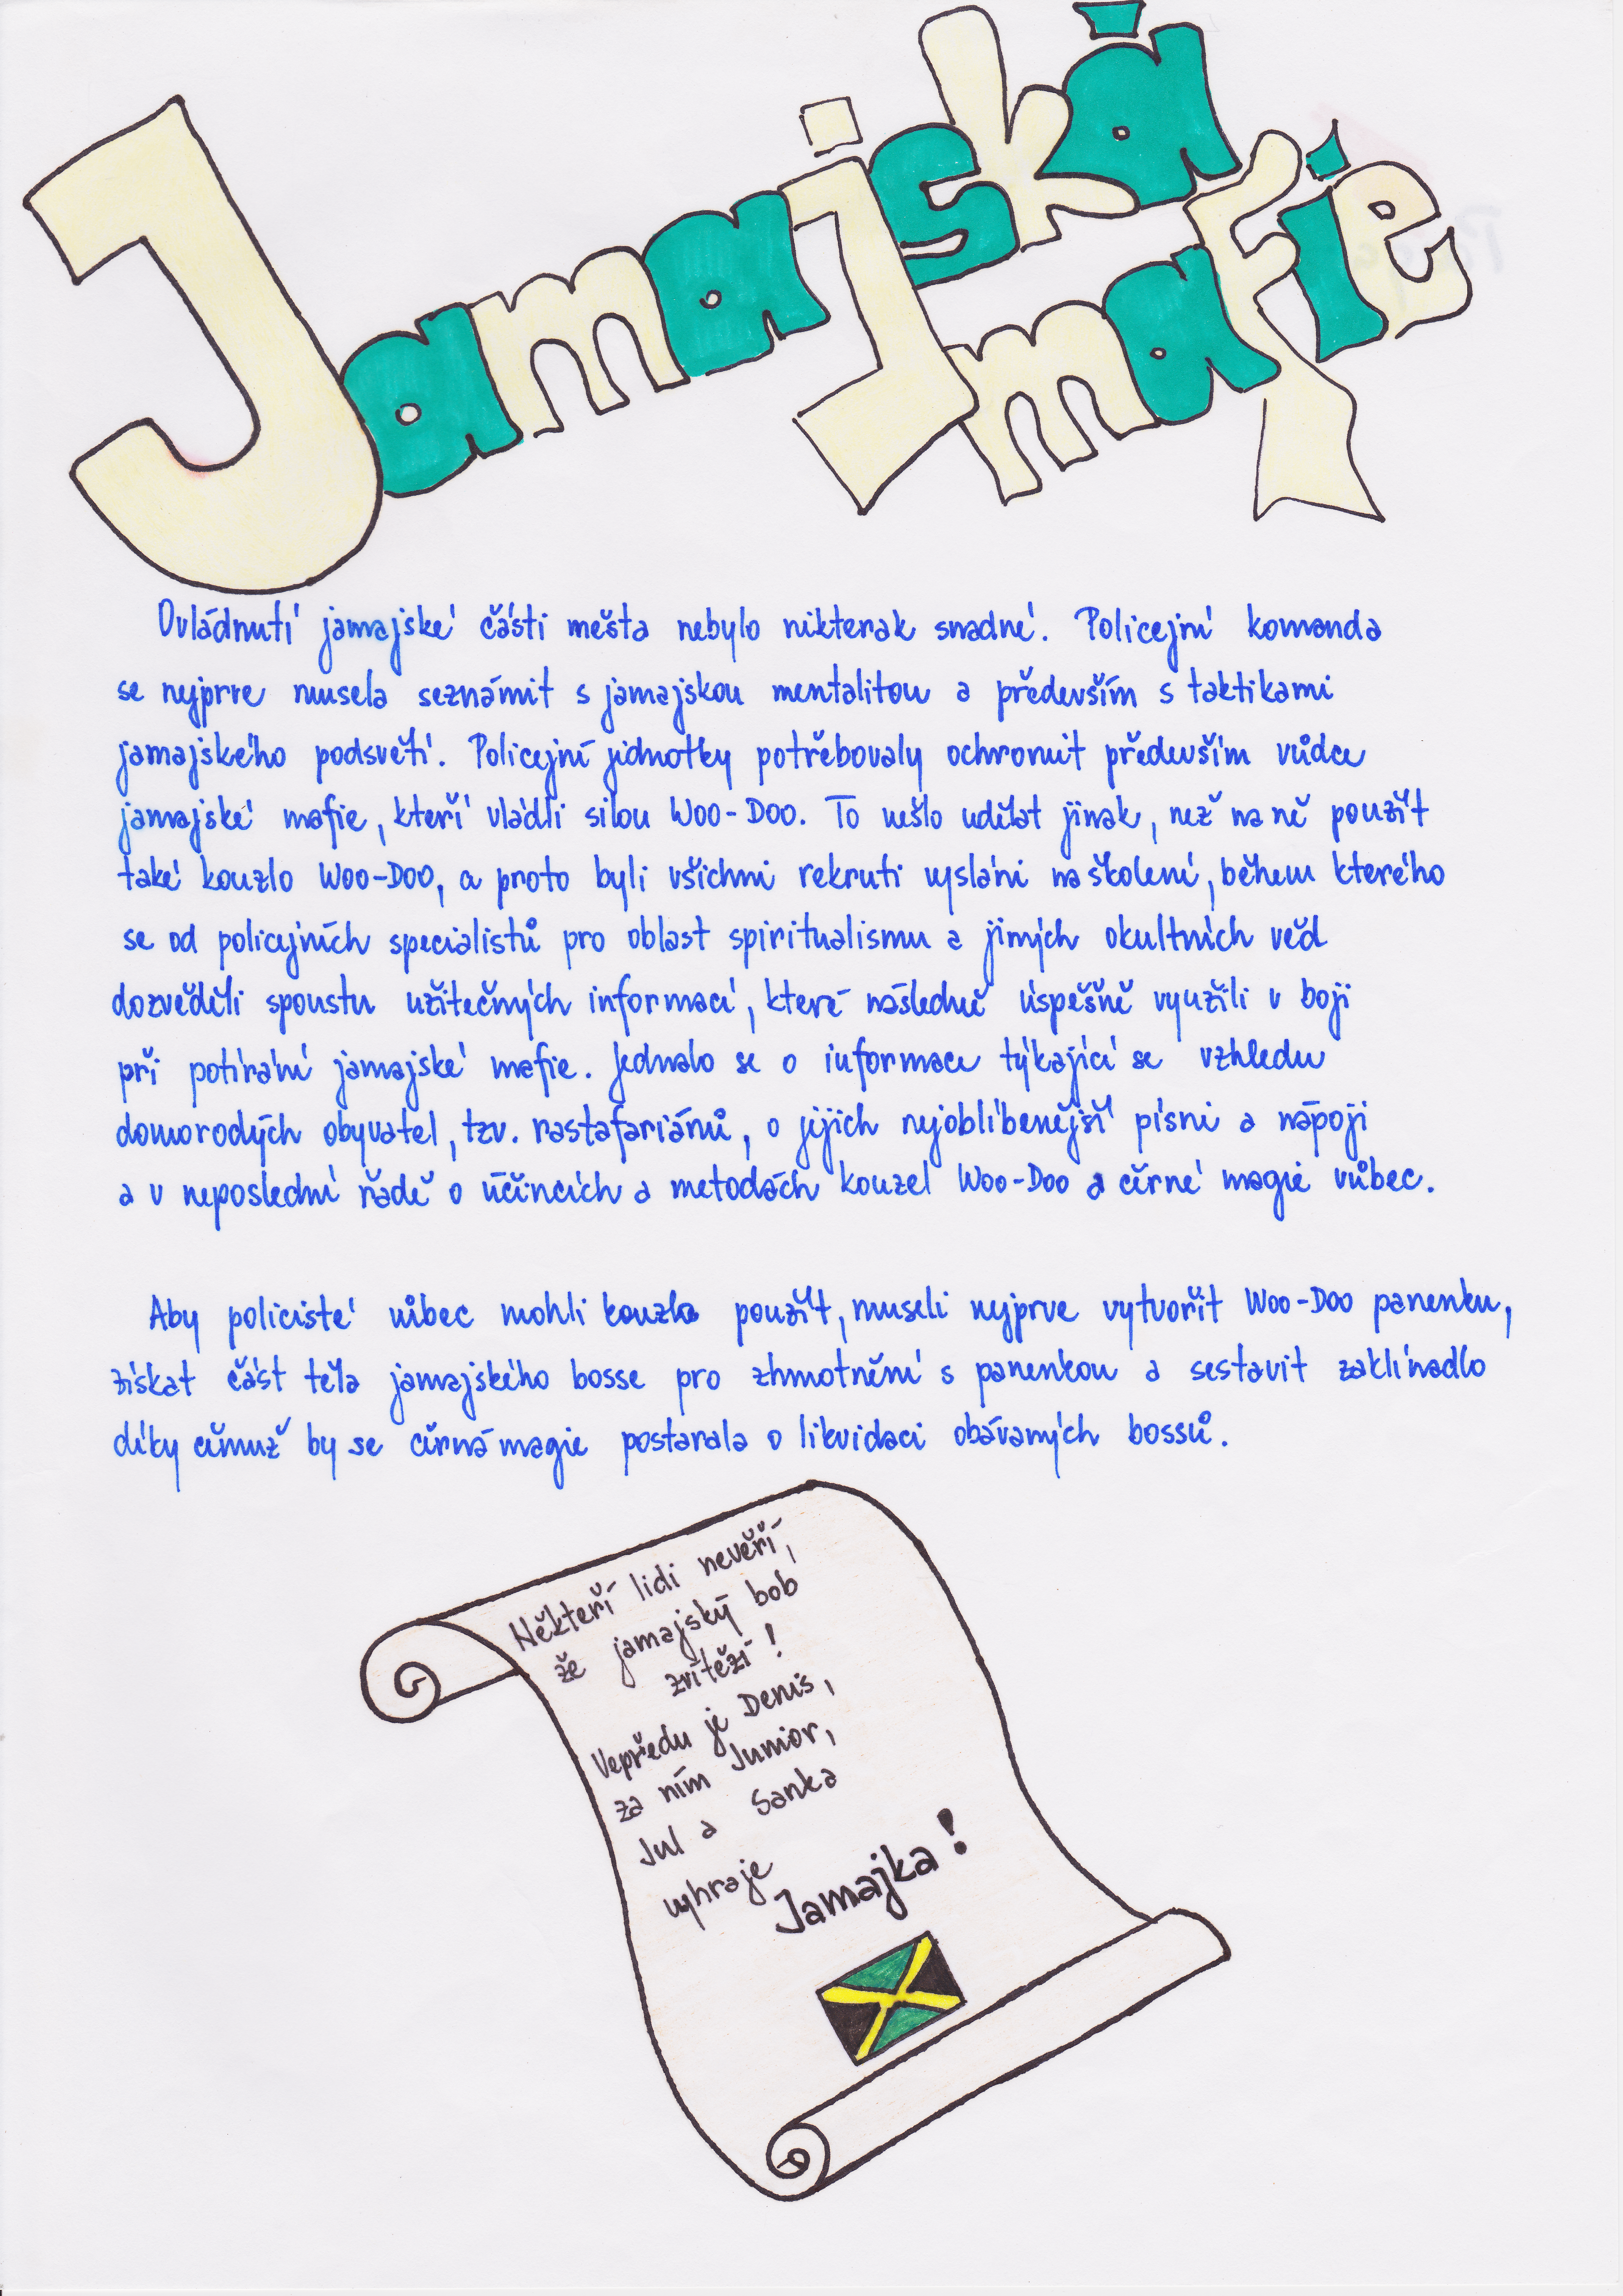 Jamajská
mafie
Ovládnutí jamajské části města nebylo nikterak snadné. Policejní komanda
se nejprve musela seznámit s jamajskou mentalitou a především s taktikami
jamajského podsvětí. Policejní jednotky potřebovaly ochromit především vůdce
jamajské mafie, kteří vládli silou Woo-Doo. To nešlo udělat jinak, než na ně použít
také kouzlo Woo-Doo, a proto byli všichni rekruti vysláni na školení, během kterého
se od policejních specialistů pro oblast spiritualismu a jiných okultních věd
dozvěděli spoustu užitečných informací, které následně úspěšně využili v boji
při potírání jamajské mafie. Jednalo se o informace týkající se vzhledu
domorodých obyvatel, tzv. rastafariánů, o jejich nejoblíbenější písni a nápoji
a v neposlední řadě o účincích a metodách kouzel Woo-Doo a černé magie vůbec.
Aby policisté vůbec mohli kouzlo použít, museli nejprve vytvořit Woo-Doo panenku,
získat část těla jamajského bosse pro zhmotnění s panenkou a sestavit zaklínadlo
díky čemuž by se černá magie postarala o likvidaci obávaných bossů.
Někteří lidi nevěří,
že jamajský bob
zvítězí!
Vepředu je Denis,
za ním Junior,
Jul a Sanka
vyhraje
Jamajka!